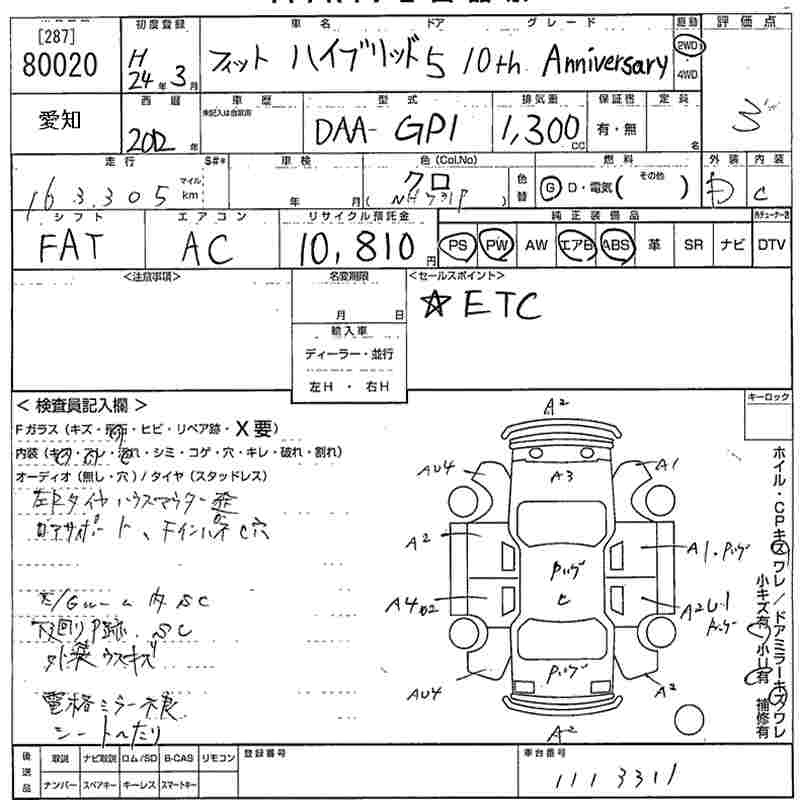 [287]
80020
愛知
初度登録
H
24年 3月
西暦
2012年
車名 ドア グレード
フィット ハイブリッド 5 10th Anniversary
駆動
2WD
4WD
評価点
3
車歴
未記入は自家用
型式
DAA- GP1
排気量
1,300
CC
保証書
有・無
定員
名
走行
163,305
マイル
km
S#*
車検
年 月
色(Col.No)
クロ
( NH731P )
色替
燃料
G D・電気( その他 )
外装
D
内装
C
シフト
FAT
エアコン
AC
リサイクル預託金
10,810円
純正装備品
PS PW AW エアB ABS 革 SR ナビ DTV
<注意事項>
名変期限
月 日
輸入車
ディーラー・並行
左H ・ 右H
<セールスポイント>
☆ ETC
<検査員記入欄>
キーロック
Fガラス(キズ・飛石・ヒビ・リペア跡・X要)
内装(キズ・スレ・汚れ・シミ・コゲ・穴・キレ・破れ・割れ)
オーディオ(無し・穴)/タイヤ(スタッドレス)
下廻りP跡. SC
外装ウスキズ
電格ミラー不良
シートヘたり
A2
AU4
A3
A1
A2
Pいげ
A1.Pいげ
A4
B2
C
A2 U1
Pいげ
AU4
Pいげ
A2
A2
ホイル・CPキズ ワレ/ドアミラーキズ/ワレ
小キズ有 小U有 補修有
後送品
取説 ナビ取説 ロム/SD B-CAS リモコン
ナンバー スペアキー キーレス スマートキー
登録番号
車台番号
1113311